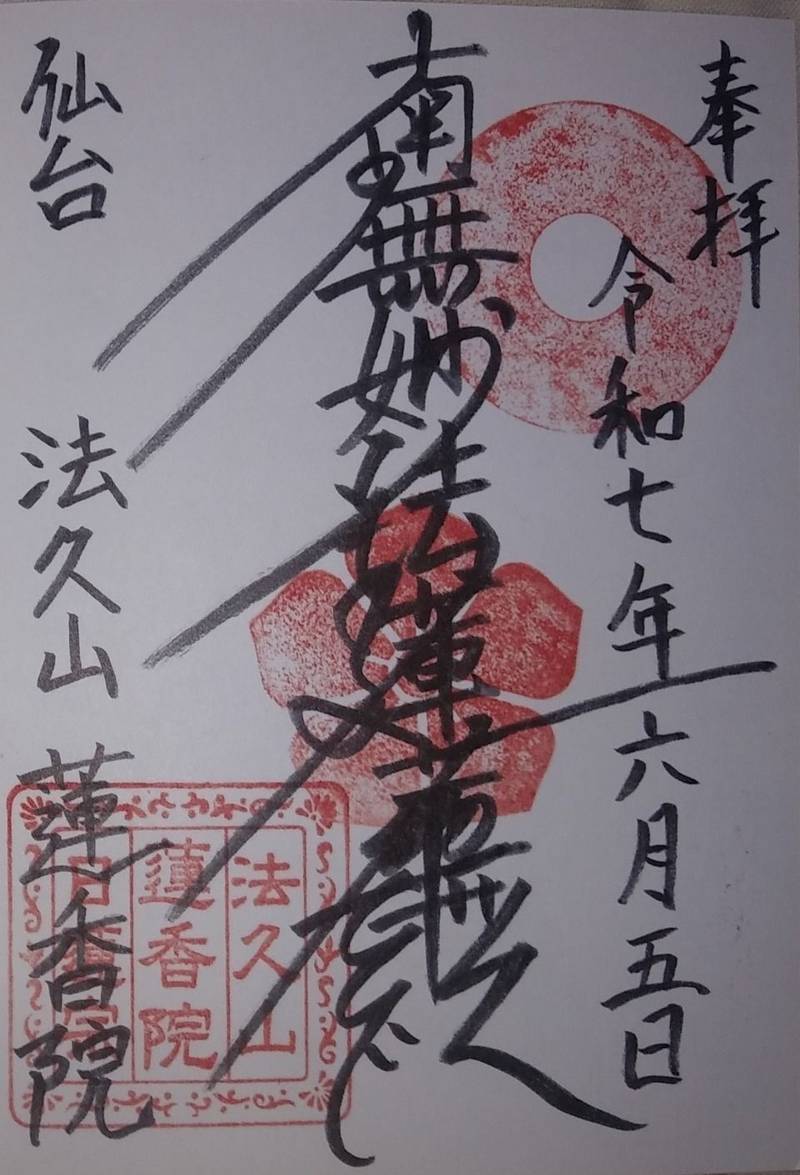 奉拝
令和七年六月五日
南無妙法蓮華経
仙台 法久山 蓮香院
法久山
蓮香院